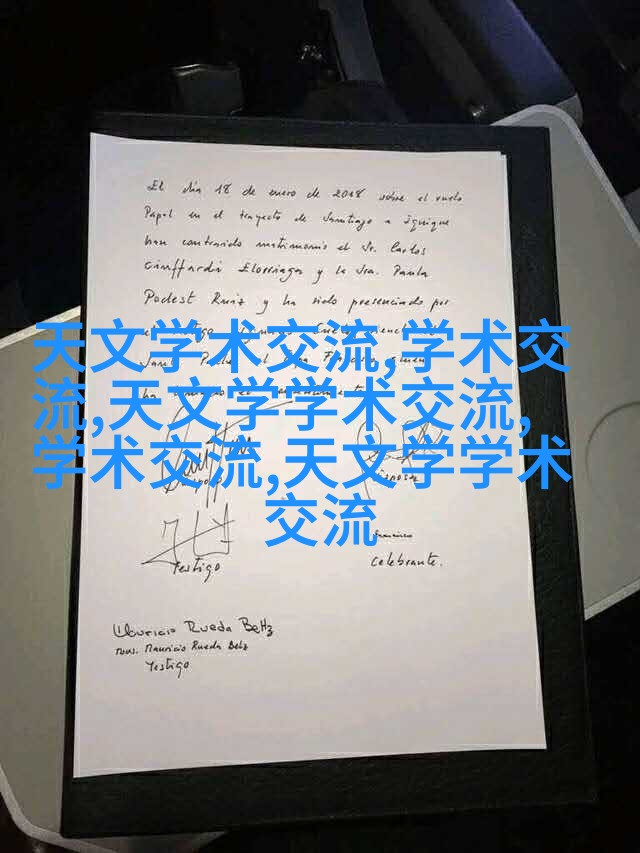 El día 18 de enero de 2018 sobre el vuelo
Papal en el trayecto de Santiago a Iquique
han contraido matrimonio el Sr. Carlos
Ciuffardi Elorriaga y la Sra. Paula
Podest Ruiz y ha sido presenciado por
天文学术交流,学术交
流,天文学学术交流,
学术交流,天文学学术
交流
Esposo
Esposa
Testigo
Francisco
Celebrante.
Mauricio Rueda Beltz
Mons. Mauricio Rueda Beltz
Testigo